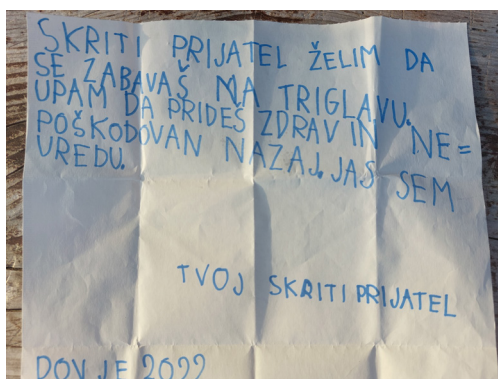 SKRITI PRIJATEL ŽELIM DA
SE ZABAVAŠ NA TRIGLAVU.
UPAM DA PRIDEŠ ZDRAV IN NE=
POŠKODOVAN NAZAJ. JAS SEM
VREDU.
TVOJ SKRITI PRIJATEL
DOVJE 2022